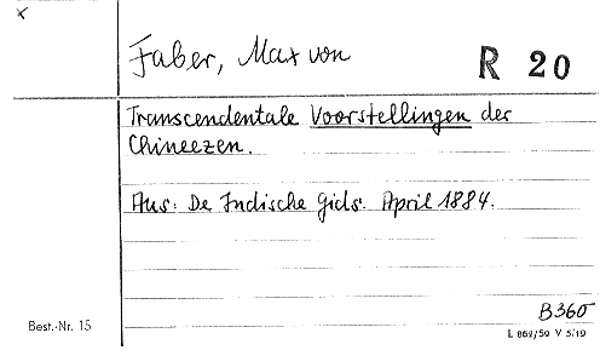 x
Faber, Max von
R 20
Transcendentale Voorstellingen der
Chineezen.
Aus: De Indische Gids. April 1884.
B360
Best.-Nr. 15
L 862/59 V 5/19